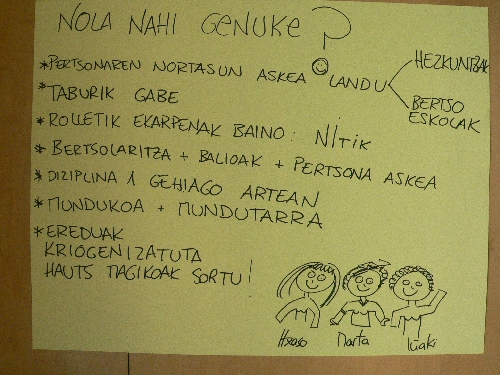 NOLA NAHI GENUKE?
*PERTSONAREN NORTASUN ASKEA LANDU
HEZKUNTZAK
BERTSO
ESKOLAK
*TABURIK GABE
*ROLLETIK EKARPENAK BAINO: NITIK
*BERTSOLARITZA + BALIOAK + PERTSONA ASKEA
*DIZIPLINA 1 GEHIAGO ARTEAN
*MUNDUKOA + MUNDUTARRA
*EREDUAK
KRIOGENIZATUTA
HAUTS MAGIKOAK SORTU!
Marta
Iñaki